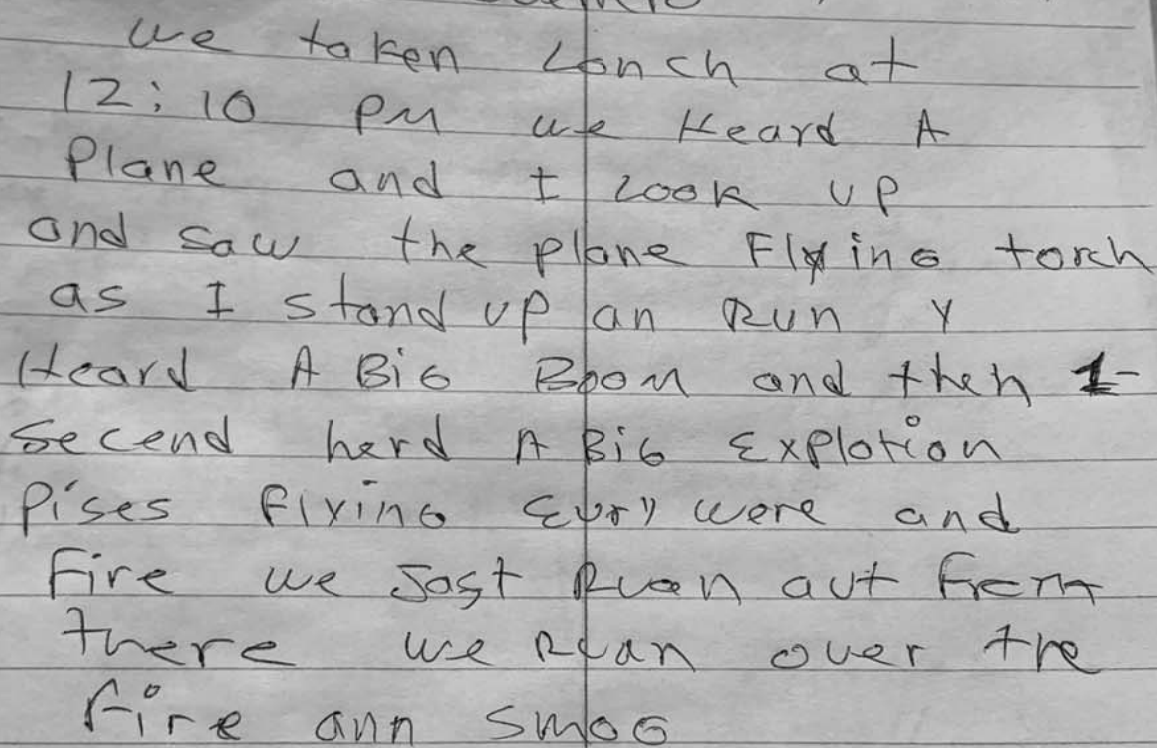 we taken Lonch at
12:10 PM we Heard A
Plane and I Look up
and saw the plane Flying torch
as I stand up an Run Y
Heard A Big Boom and then 1-
Secend herd A Big Explotion
Pises flying Evry were and
Fire we Jast Ruan aut from
there we Ruan over the
fire ann smog